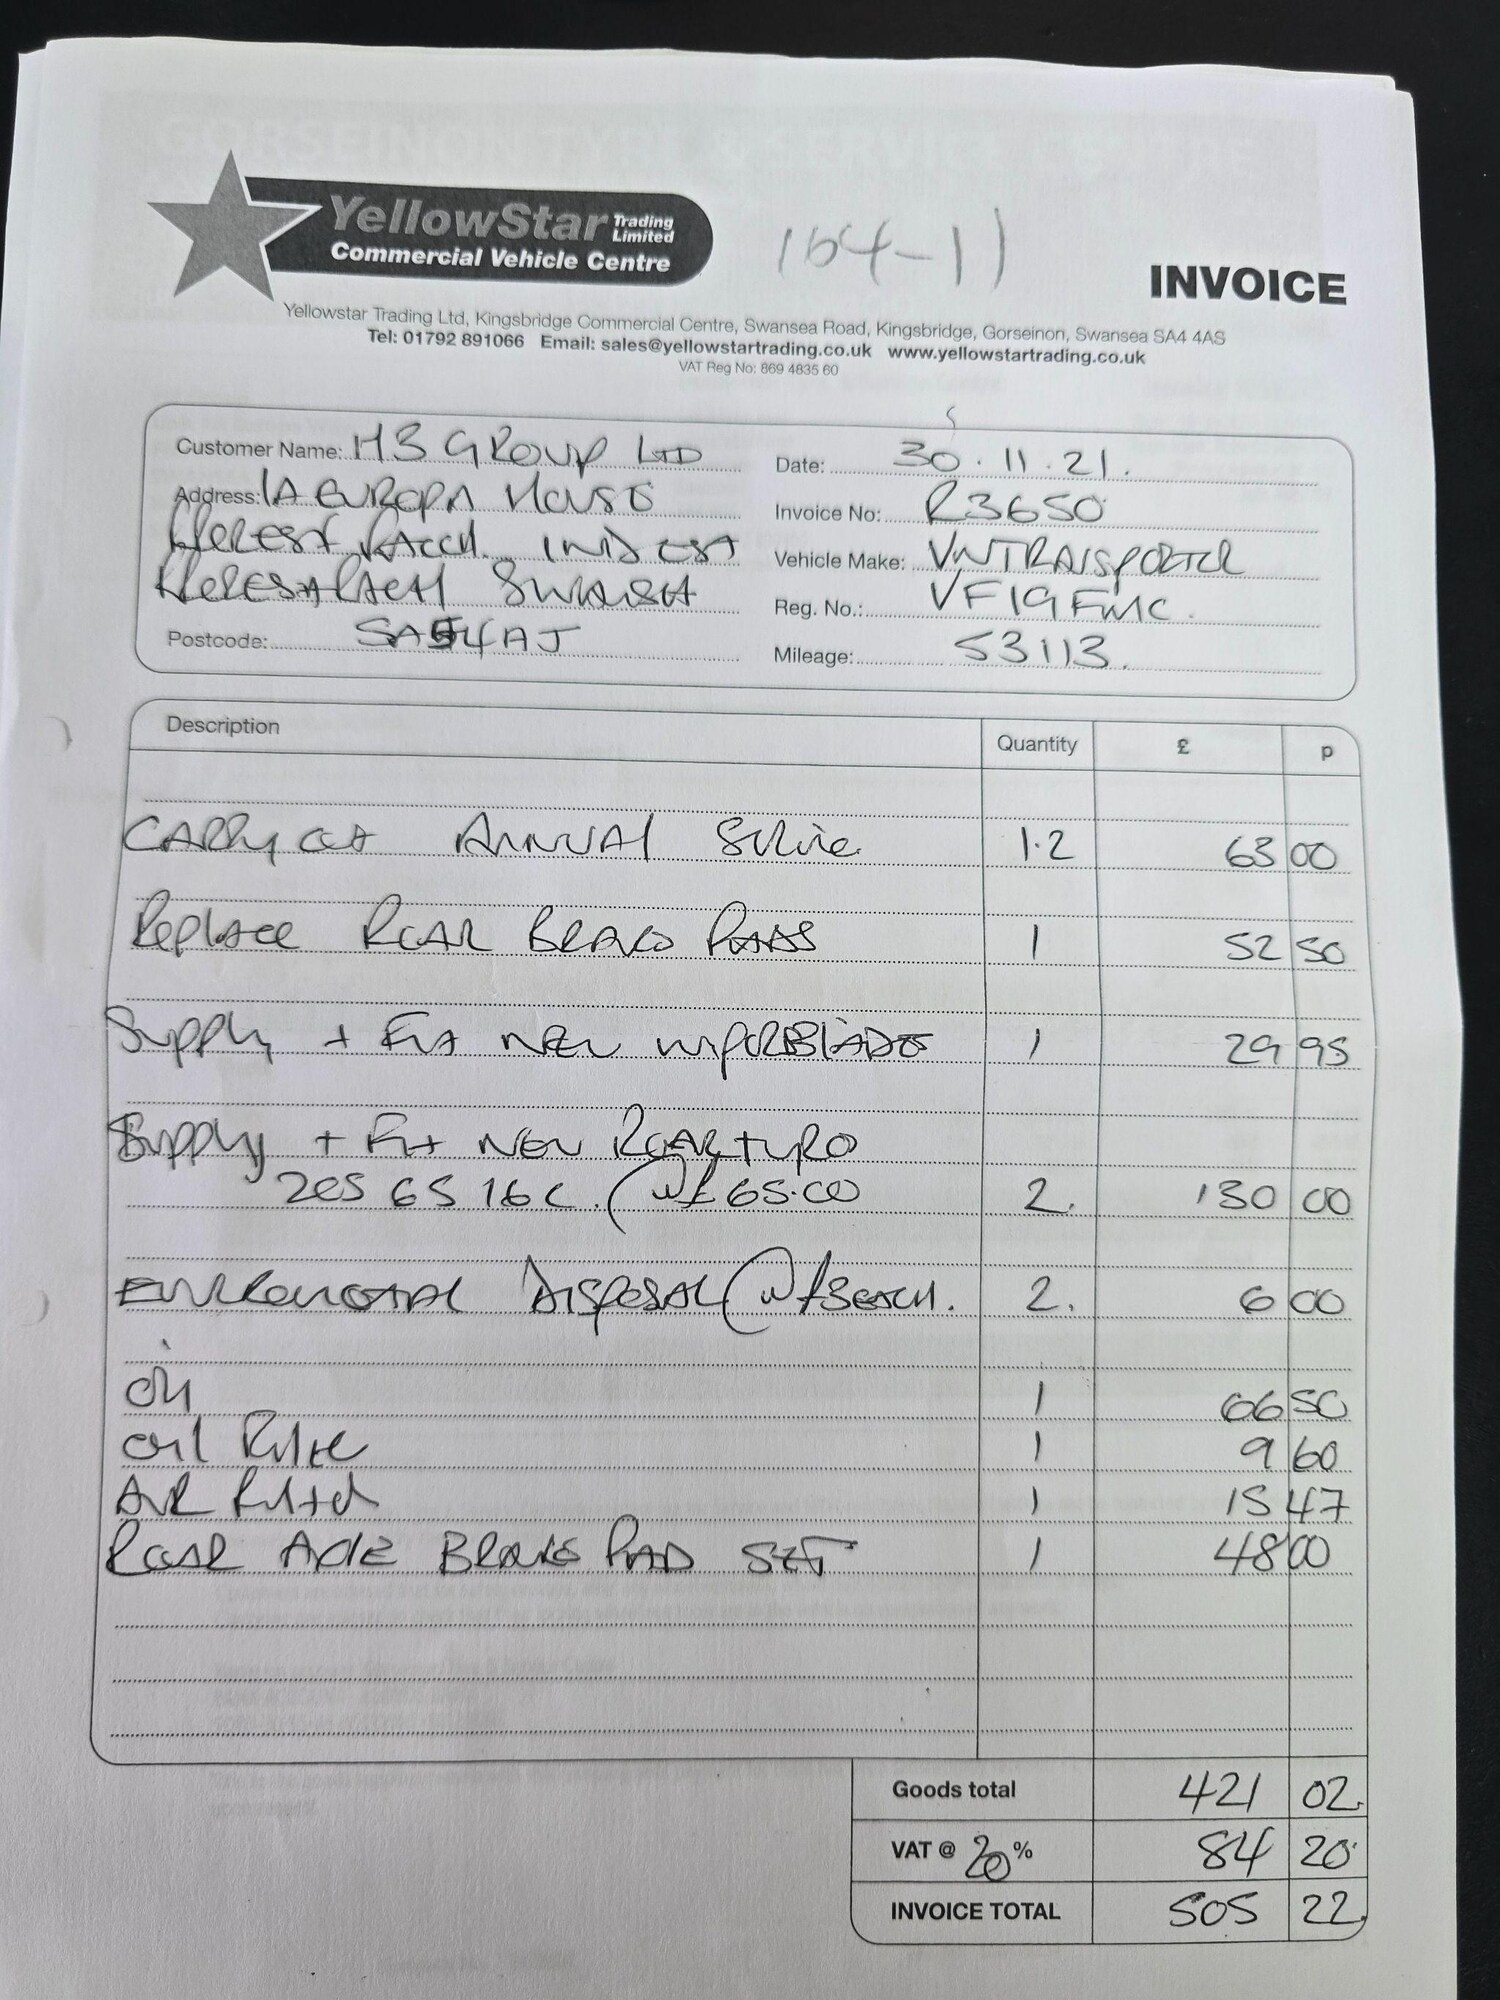 YellowStar Trading Limited
Commercial Vehicle Centre
164-11
INVOICE
Yellowstar Trading Ltd, Kingsbridge Commercial Centre, Swansea Road, Kingsbridge, Gorseinon, Swansea SA4 4AS
Tel: 01792 891066 Email: sales@yellowstartrading.co.uk www.yellowstartrading.co.uk
VAT Reg No: 869 4835 60
Customer Name: H3 GROUP LTD
Address: 1A EUROPA HOUSE
INDEST
Postcode: SA54AJ
Date: 30.11.21.
Invoice No: R3650
Vehicle Make: VW TRANSPORTER
Reg. No.: VF19FMC.
Mileage: 53113.
Description Quantity £ p
CARRY out ANNUAL Service 1.2 63 00
Replace REAR BRAKE PADS 1 52 50
Supply + Fit NEW WIPERBLADE 1 29 95
Supply + Fit NEW REAR TYRE
205 65 16C. @ £65.00 2. 130 00
DISPOSAL @ £3 EACH. 2. 6 00
Oil 1 66 50
Oil Filter 1 9 60
AIR Filter 1 15 47
REAR AXLE BRAKE PAD SET 1 48 00
Goods total 421 02.
VAT @ 20 % 84 20
INVOICE TOTAL 505 22